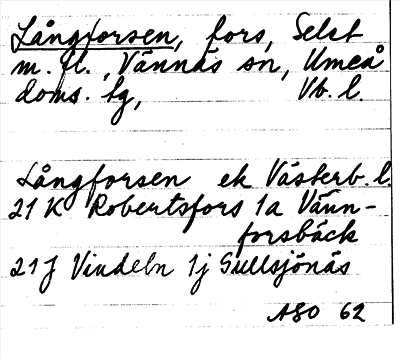 Långforsen, fors, Selet
m. fl., Vännäs sn, Umeå
doms. tg, Vb. l.
Långforsen ek Västerb. l.
21 K Robertsfors 1a Vänn-
forsbäck
21 J Vindeln 1j Gullsjönäs
ASO 62